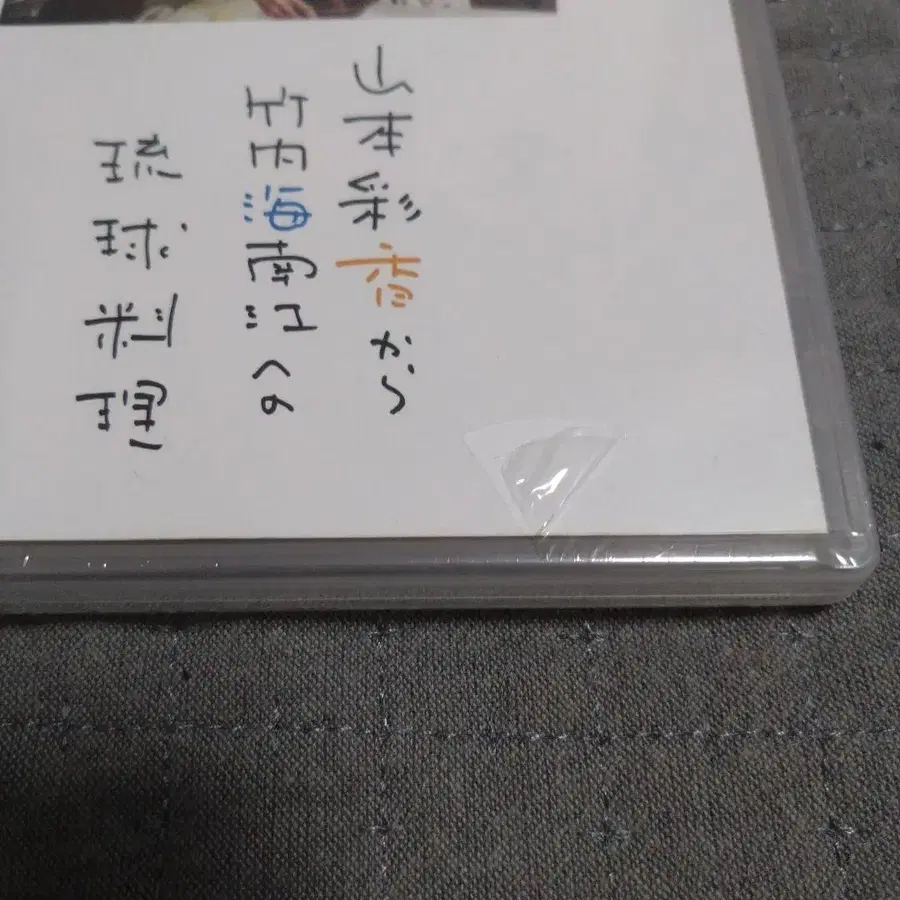 山本彩香から
竹内海南江への
琉球料理